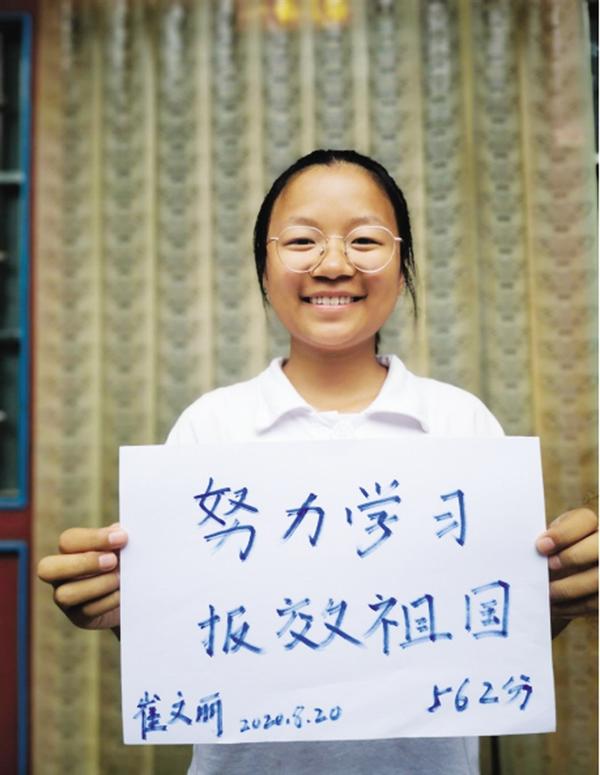 努力学习
报效祖国
崔文丽 2020.8.20 562分